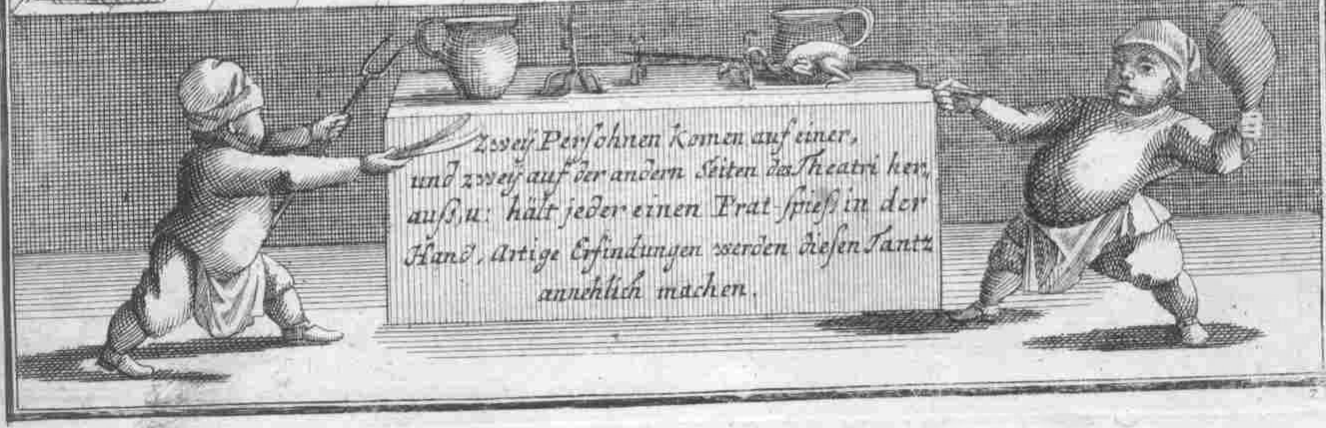 Zweÿ Persohnen komen auf einer,
und zweÿ auf der andern Seiten des Theatri her,
auß, u: hält jeder einen Prat-spieß in der
Hand, Artige Erfindungen werden diesen Tantz
annehlich machen.